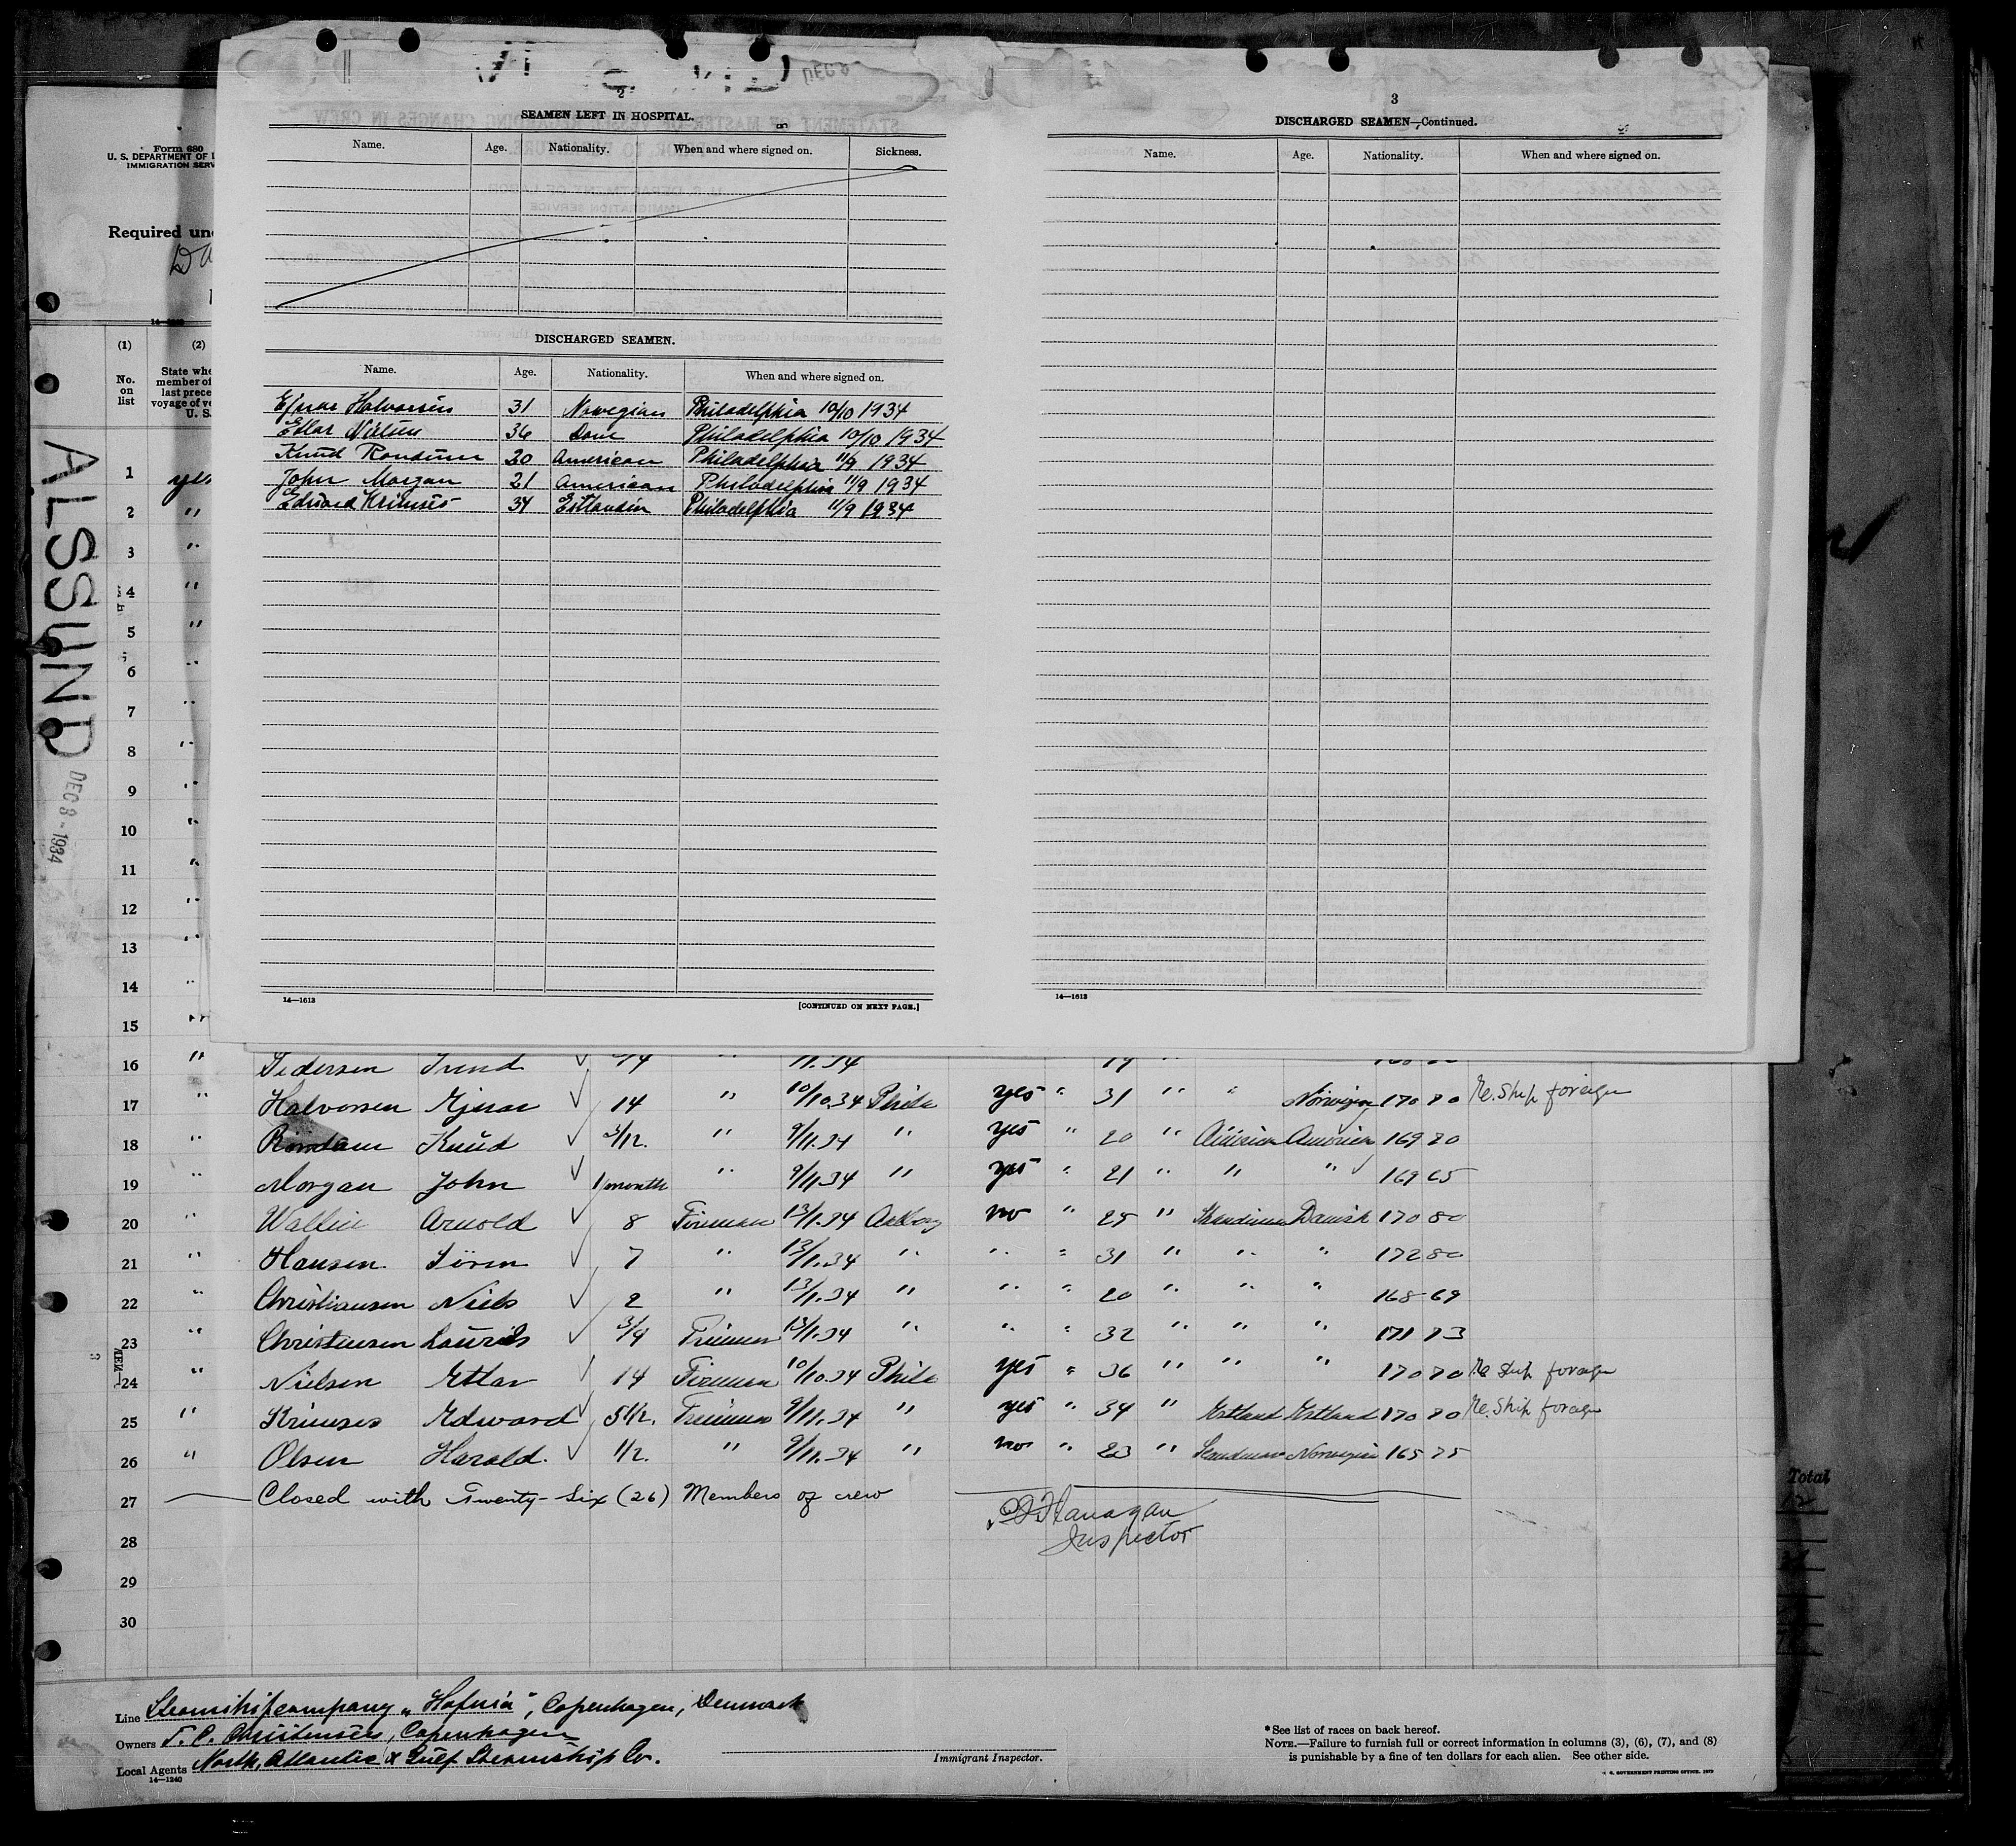 2
SEAMEN LEFT IN HOSPITAL.
Name. Age. Nationality. When and where signed on. Sickness.
DISCHARGED SEAMEN.
Name. Age. Nationality. When and where signed on.
Ejnar Halvorsen 31 Norwegian Philadelphia 10/10 1934
Etlar Nielsen 36 Dane Philadelphia 10/10 1934
Knud Rondum 20 American Philadelphia 11/9 1934
John Morgan 21 American Philadelphia 11/9 1934
Edward Krimses 34 Estlandin Philadelphia 11/9 1934
14—1613
[CONTINUED ON NEXT PAGE.]
3
DISCHARGED SEAMEN—Continued.
Name. Age. Nationality. When and where signed on.
14—1613
Form 680
U. S. DEPARTMENT OF
IMMIGRATION SERV
Required un
14—1240
(1) (2)
No. on list
State whe
member of
last prece
voyage of ve
U. S.
ALSSUND
DEC 8 - 1934
1 yes
2 "
3 "
4 "
5 "
6 "
7 "
8 "
9 "
10 "
11 "
12 "
13 "
14 "
15 "
16 " Pedersen Svend
17 " Halvorsen Ejnar 14 " 10/10.34 Phila yes " 31 " " Norwegian 170 80 Re. Ship foreign
18 " Knud 3/12. " 9/11.34 " yes " 20 " American American 169 80
19 " Morgan John 1 month " 9/11.34 " yes " 21 " " " 169 65
20 " Wallin Arnold 8 Fireman 13/1.34 Aalborg no " 25 " Danish 170 80
21 " Hansen Sören 7 " 13/1.34 " " " 31 " " " 172 80
22 " Christiansen Niels 2 " 13/1.34 " " " 20 " " " 168 69
23 " Christensen Laurids 3/4 13/1.34 " " " 32 " " " 171 73
24 " Nielsen Etlar 14 Fireman 10/10.34 Phila yes " 36 " " " 170 70 Re Ship foreign
25 " Krimses Edward 5 1/2. 9/11.34 " yes " 34 " Estland Estland 170 70 Re. Ship foreign
26 " Olsen Harald. 1/2. " 9/11.34 " no " 23 " Norwegian 165 75
27 Closed with Twenty-Six (26) Members of crew
Flanagan
Inspector
28
29
30
Total
12
Line Steamshipcompany „Hafnia", Copenhagen, Denmark
Owners T. C. Christensen, Copenhagen
Local Agents North, Atlantic & Gulf Steamship Co.
14—1240
Immigrant Inspector.
* See list of races on back hereof.
NOTE.—Failure to furnish full or correct information in columns (3), (6), (7), and (8)
is punishable by a fine of ten dollars for each alien. See other side.